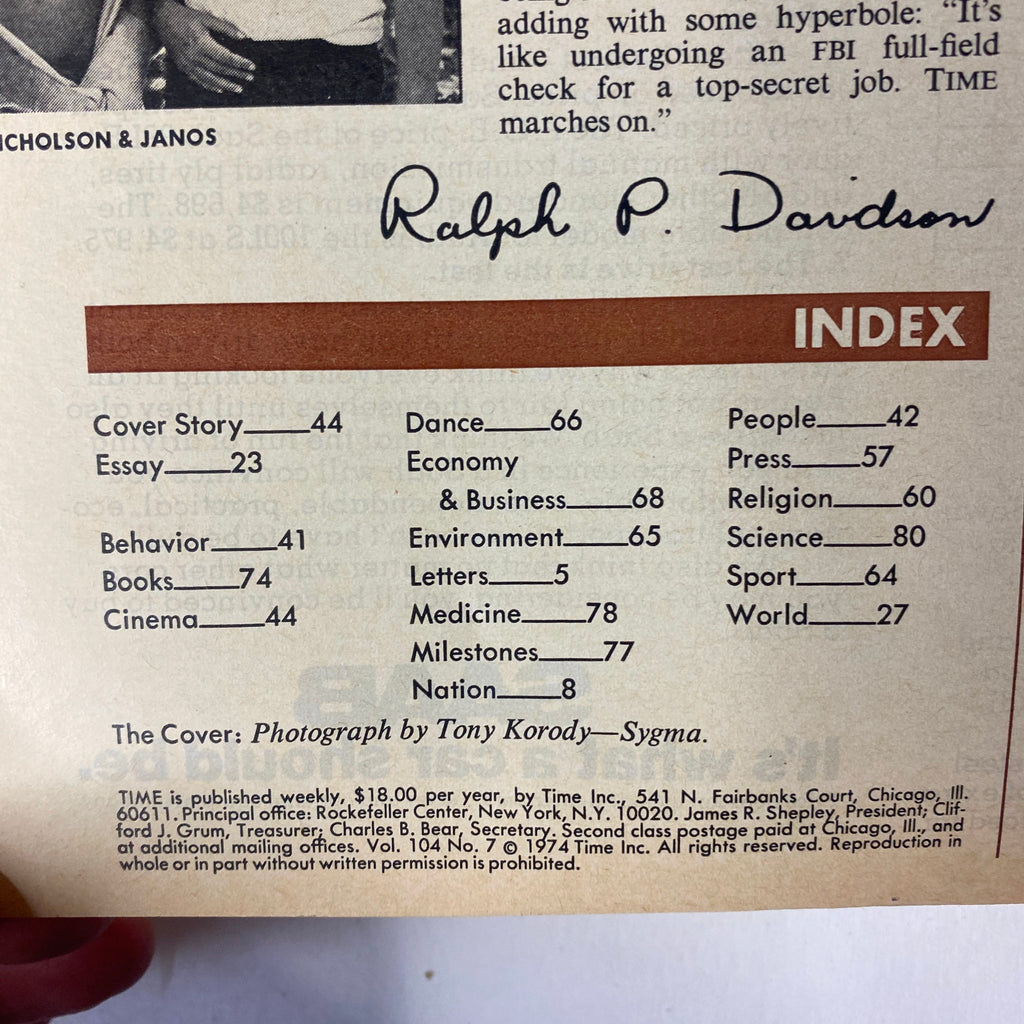 adding with some hyperbole: "It's
like undergoing an FBI full-field
check for a top-secret job. TIME
marches on."
ICHOLSON & JANOS
Ralph P. Davidson
INDEX
Cover Story 44
Essay 23
Behavior 41
Books 74
Cinema 44
Dance 66
Economy
& Business 68
Environment 65
Letters 5
Medicine 78
Milestones 77
Nation 8
People 42
Press 57
Religion 60
Science 80
Sport 64
World 27
The Cover: Photograph by Tony Korody—Sygma.
TIME is published weekly, $18.00 per year, by Time Inc., 541 N. Fairbanks Court, Chicago, Ill.
60611. Principal office: Rockefeller Center, New York, N.Y. 10020. James R. Shepley, President; Clif-
ford J. Grum, Treasurer; Charles B. Bear, Secretary. Second class postage paid at Chicago, Ill., and
at additional mailing offices. Vol. 104 No. 7 © 1974 Time Inc. All rights reserved. Reproduction in
whole or in part without written permission is prohibited.